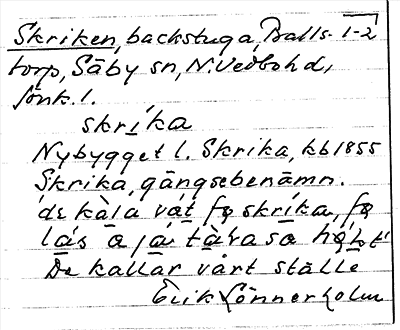 Skriken, backstuga, Balls- 1-2
torp, Säby sn, N. Vedbo hd,
Jönk. l.
skríka
Nybygget l. Skrika, kb 1855
Skrika, gängse benämn.
de kàla vat fø skríka, fø
lás a já tàra sa
De kallar vårt ställe
Erik Lönnerholm